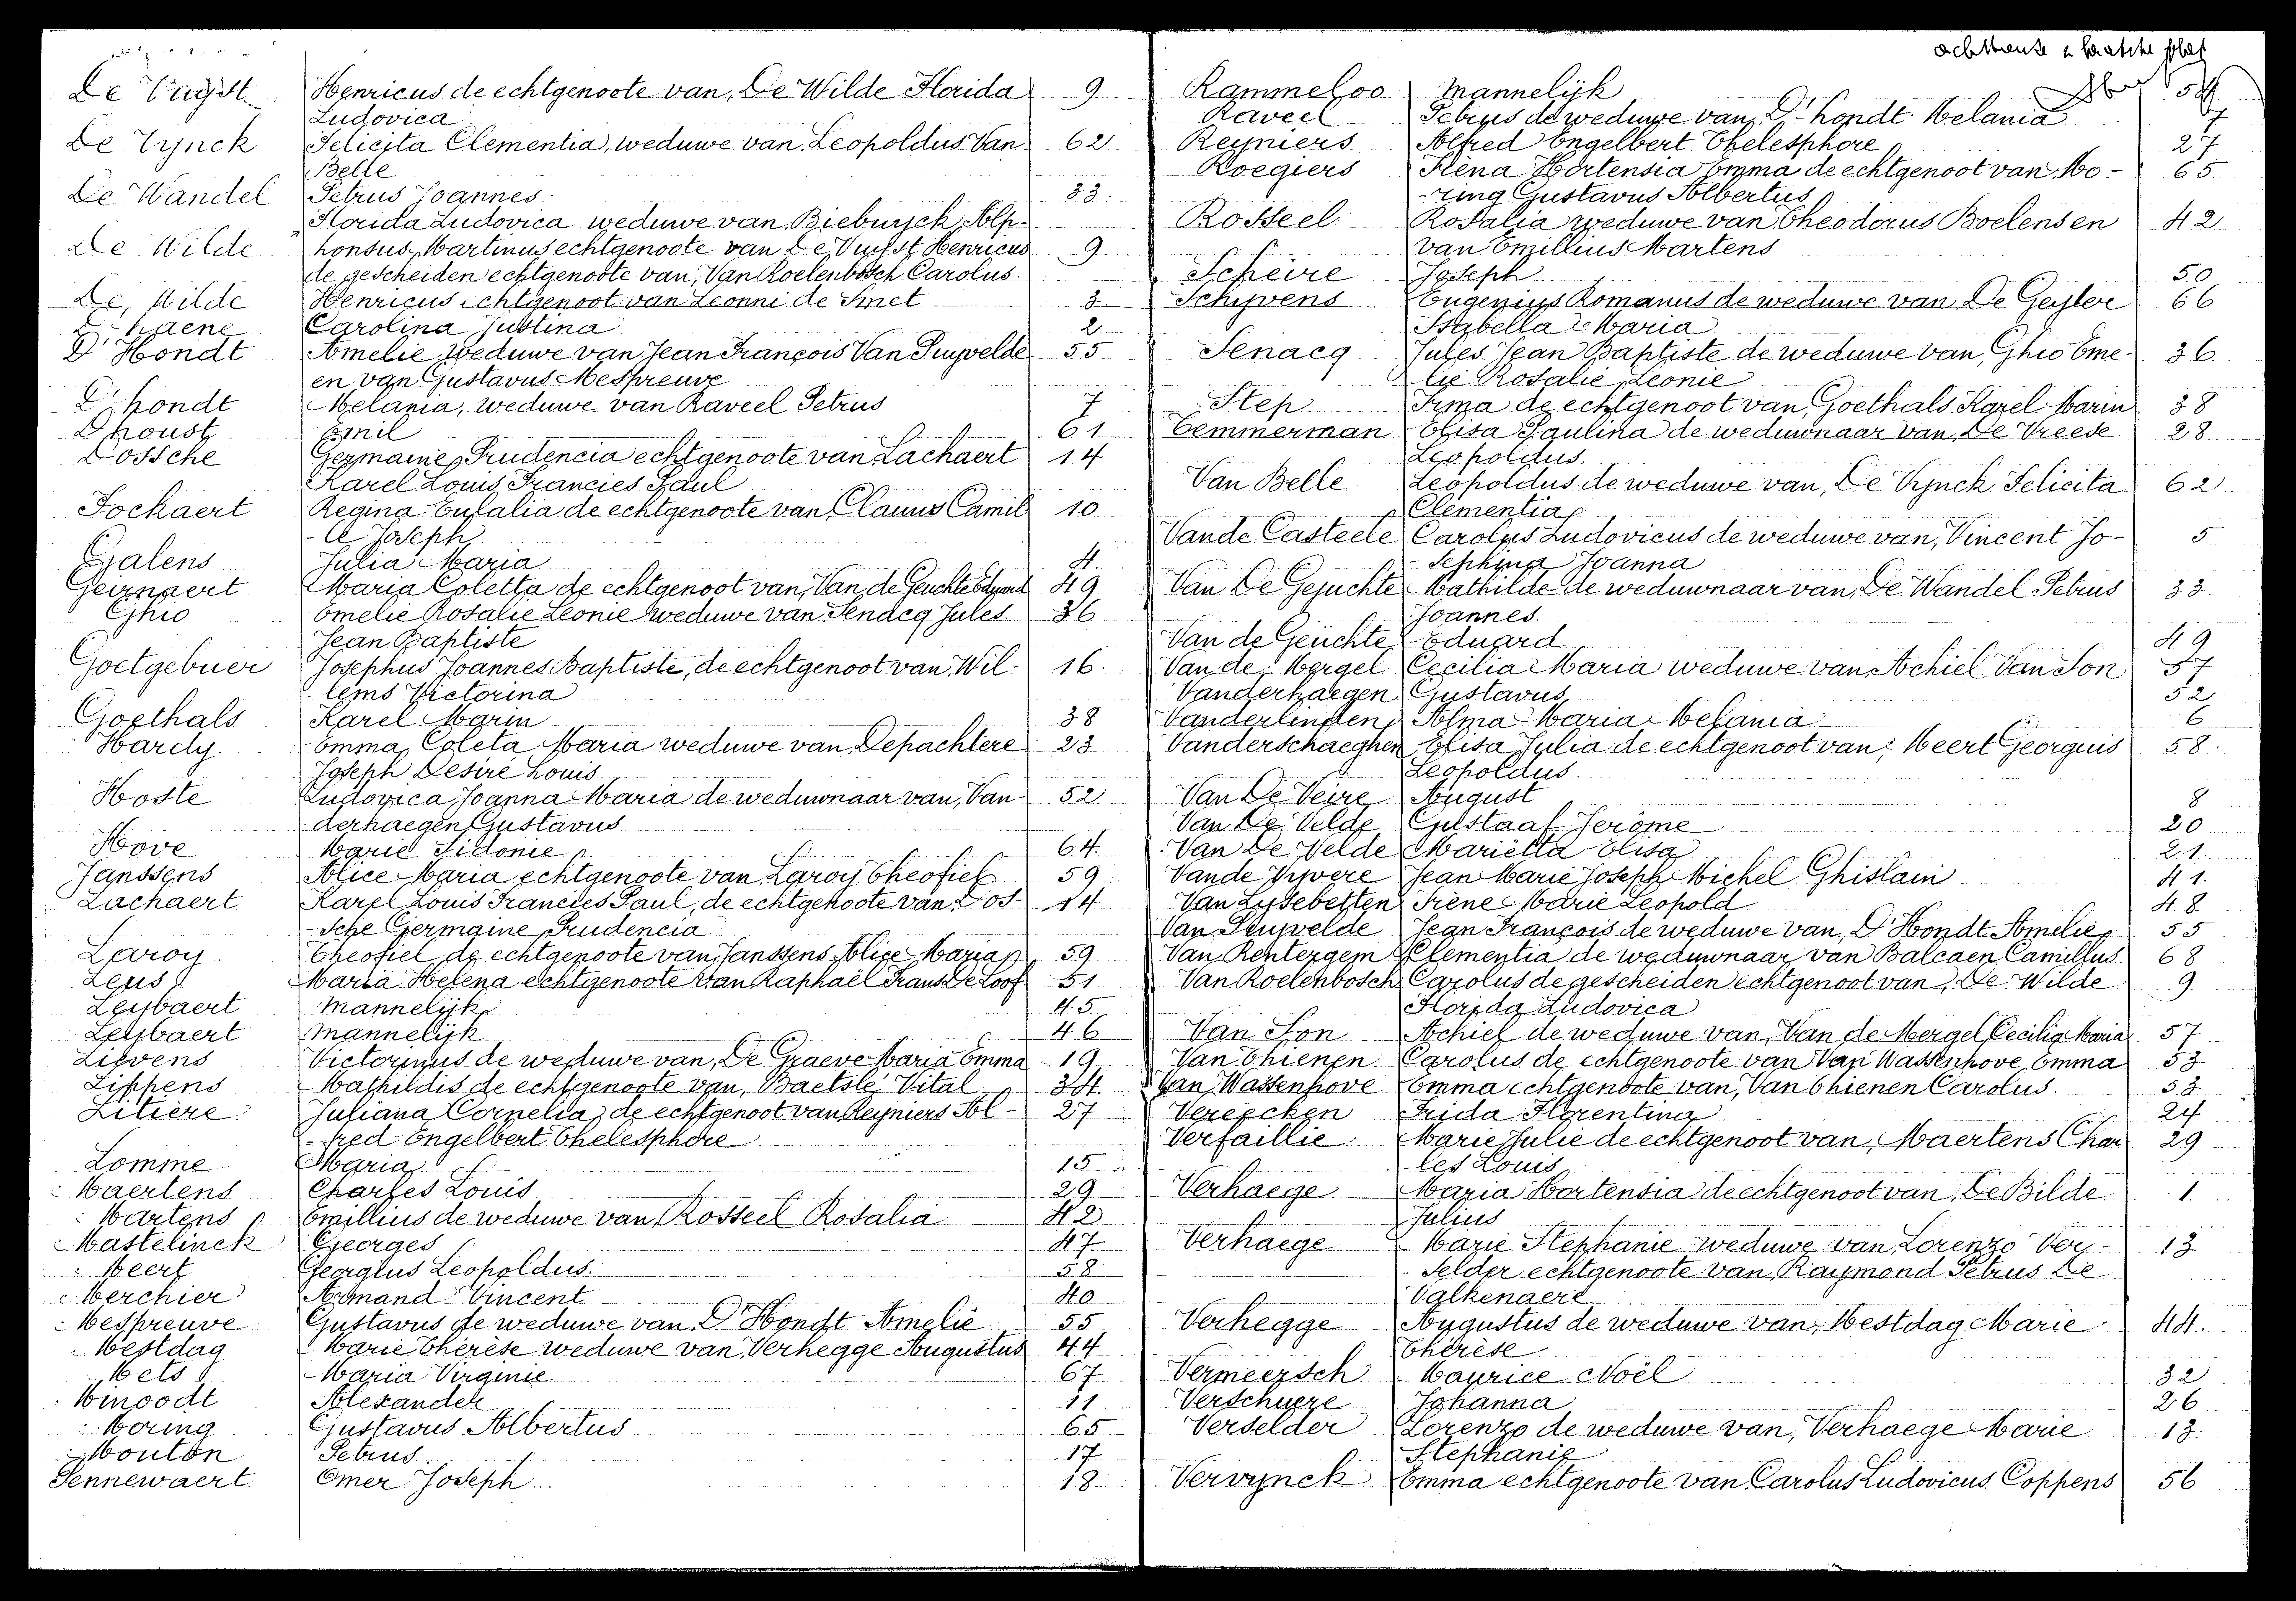 De Vuyst Henricus de echtgenoote van, De Wilde Florida 9
Ludovica
De Vynck Felicita Clementia, weduwe van, Leopoldus Van 62
Belle
De Wandel Petrus Joannes 33
Florida Ludovica weduwe van Biebuyck Alp-
De Wilde honsus, Martinus echtgenoote van De Vuyst Henricus 9
de gescheiden echtgenoote van, Van Roelenbosch Carolus
De Wilde Henricus echtgenoot van Leonni de Smet 3
D'haene Carolina Justina 2
D'Hondt Amelie weduwe van Jean François Van Puyvelde 55
en van Gustavus Mespreuve
D'hondt Melania, weduwe van Raveel Petrus 7
Dhoust Emil 61
Dossche Germaine Prudencia echtgenoote van Lachaert 14
Karel Louis Francies Paul
Fockaert Regina Eulalia de echtgenoote van, Clauus Camil 10
Joseph
Galens Julia Maria 4
Geirnaert Maria Coletta de echtgenoot van, Van de Geuchte Eduard 49
Ghio Emelie Rosalie Leonie weduwe van Senacq Jules 36
Jean Baptiste
Goetgebuer Josephus Joannes Baptiste, de echtgenoot van Wil- 16
lems Victorina
Goethals Karel Marin 38
Hardy Emma Coleta Maria weduwe van Depachtere 23
Joseph Desiré Louis
Hoste Ludovica Joanna Maria de weduwnaar van, Van- 52
derhaegen Gustavus
Hove Marie Sidonie 64
Janssens Alice Maria echtgenoote van Laroy Theofiel 59
Lachaert Karel Louis Francies Paul, de echtgenoote van Dos- 14
-sche Germaine Prudencia
Laroy Theofiel de echtgenoote van Janssens Alice Maria 59
Leus Maria Helena echtgenoote van Raphaël Frans De Loof 51
Leybaert Mannelijk 45
Leybaert Mannelijk 46
Lievens Victorinus de weduwe van, De Graeve Maria Emma 19
Lippens Mathildis de echtgenoote van, Baetslé Vital 34
Litière Juliana Cornelia, de echtgenoot van Reyniers Al- 27
-fred Engelbert Thelesphore
Lomme Maria 15
Maertens Charles Louis 29
Martens Emillius de weduwe van, Rosseel Rosalia 42
Mastelinck Georges 47
Meert Georgius Leopoldus 58
Merchier Armand Vincent 40
Mespreuve Gustavus de weduwe van, D'Hondt Amelie 55
Mestdag Marie Thérèse weduwe van Verhegge Augustus 44
Mets Maria Virginie 67
Minoodt Alexander 11
Moring Gustavus Albertus 65
Mouton Petrus 17
Pennewaert Omer Joseph 18
Rammeloo Mannelijk 54
Raveel Petrus de weduwe van, D'hondt Melania 7
Reyniers Alfred Engelbert Thelesphore 27
Roegiers Iréna Hortensia Emma de echtgenoot van, Mo- 65
-ring Gustavus Albertus
Rosseel Rosalia weduwe van Theodorus Boelens en 42
van Emillius Martens
Scheire Joseph 50
Schyvens Eugenius Romanus de weduwe van, De Geyter 66
Isabella Maria
Senacq Jules Jean Baptiste de weduwe van, Ghio Eme- 36
lie Rosalie Leonie
Step Irma de echtgenoot van, Goethals Karel Marin 38
Temmerman Elisa Paulina de weduwnaar van, De Vreese 28
Leopoldus
Van Belle Leopoldus de weduwe van, De Vynck Felicita 62
Clementia
Vande Casteele Carolus Ludovicus de weduwe van, Vincent Jo- 5
-sephina Joanna
Van De Gejuchte Mathilde de weduwnaar van, De Wandel Petrus 33
Joannes
Van de Geuchte Eduard 49
Van de Mergel Cecilia Maria weduwe van Achiel Van Son 57
Vanderhaegen Gustavus 52
Vanderlinden Alma Maria Melania 6
Vanderschaeghen Elisa Julia de echtgenoot van, Meert Georgius 58
Leopoldus
Van De Veire August 8
Van De Velde Gustaaf Jeròme 20
Van De Velde Mariëtta Elisa 21
Vande Vyvere Jean Marie Joseph Michel Ghislain 41
Van Lysebetten Irène Marie Leopold 48
Van Puyvelde Jean François de weduwe van, D'Hondt Amelie 55
Van Renterghem Clementia de weduwnaar van Balcaen Camillus 68
Van Roelenbosch Carolus de gescheiden echtgenoot van, De Wilde 9
Florida Ludovica
Van Son Achiel de weduwe van, Van de Mergel Cecilia Maria 57
Van Thienen Carolus de echtgenoote van Van Wassenhove Emma 53
Van Wassenhove Emma echtgenoote van, Van Thienen Carolus 53
Vereecken Frida Florentina 24
Verfaillie Marie Julie de echtgenoot van, Maertens Char 29
les Louis
Verhaege Maria Hortensia de echtgenoot van, De Bilde 1
Julius
Verhaege Marie Stephanie weduwe van Lorenzo Ver- 13
-selder echtgenoote van, Raymond Petrus De
Valkenaere
Verhegge Augustus de weduwe van, Mestdag Marie 44
Thérèse
Vermeersch Maurice Noël 32
Verschuere Johanna 26
Verselder Lorenzo de weduwe van, Verhaege Marie 13
Stephanie
Vervynck Emma echtgenoote van, Carolus Ludovicus Coppens 56